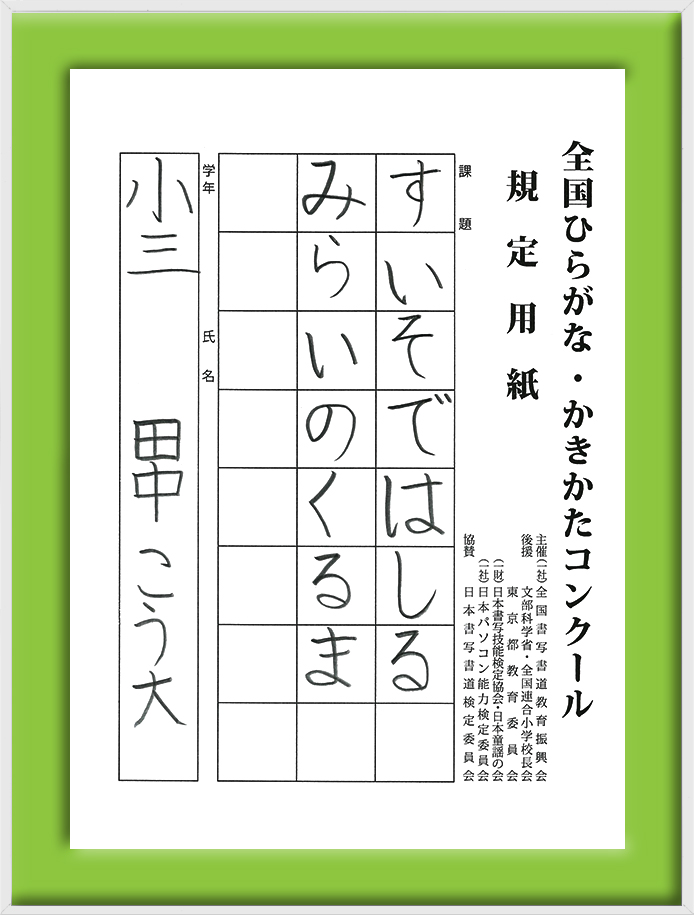 全国ひらがな・かきかたコンクール
規定用紙
主催 (一社)全国書写書道教育振興会
後援 文部科学省・全国連合小学校長会
東京都教育委員会
(一財)日本書写技能検定協会・日本童謡の会
(一社)日本パソコン能力検定委員会
協賛 日本書写書道検定委員会
課題
すいそではしる
みらいのくるま
学年 氏名
小三 田中こう大